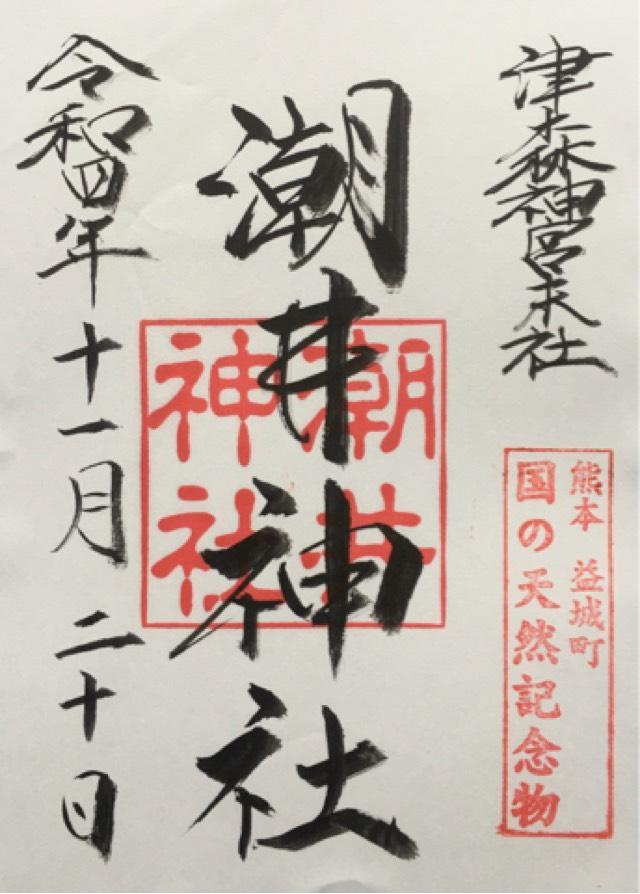 津森神宮末社
熊本 益城町
国の天然記念物
潮井神社
潮井
神社
令和四年十一月二十日